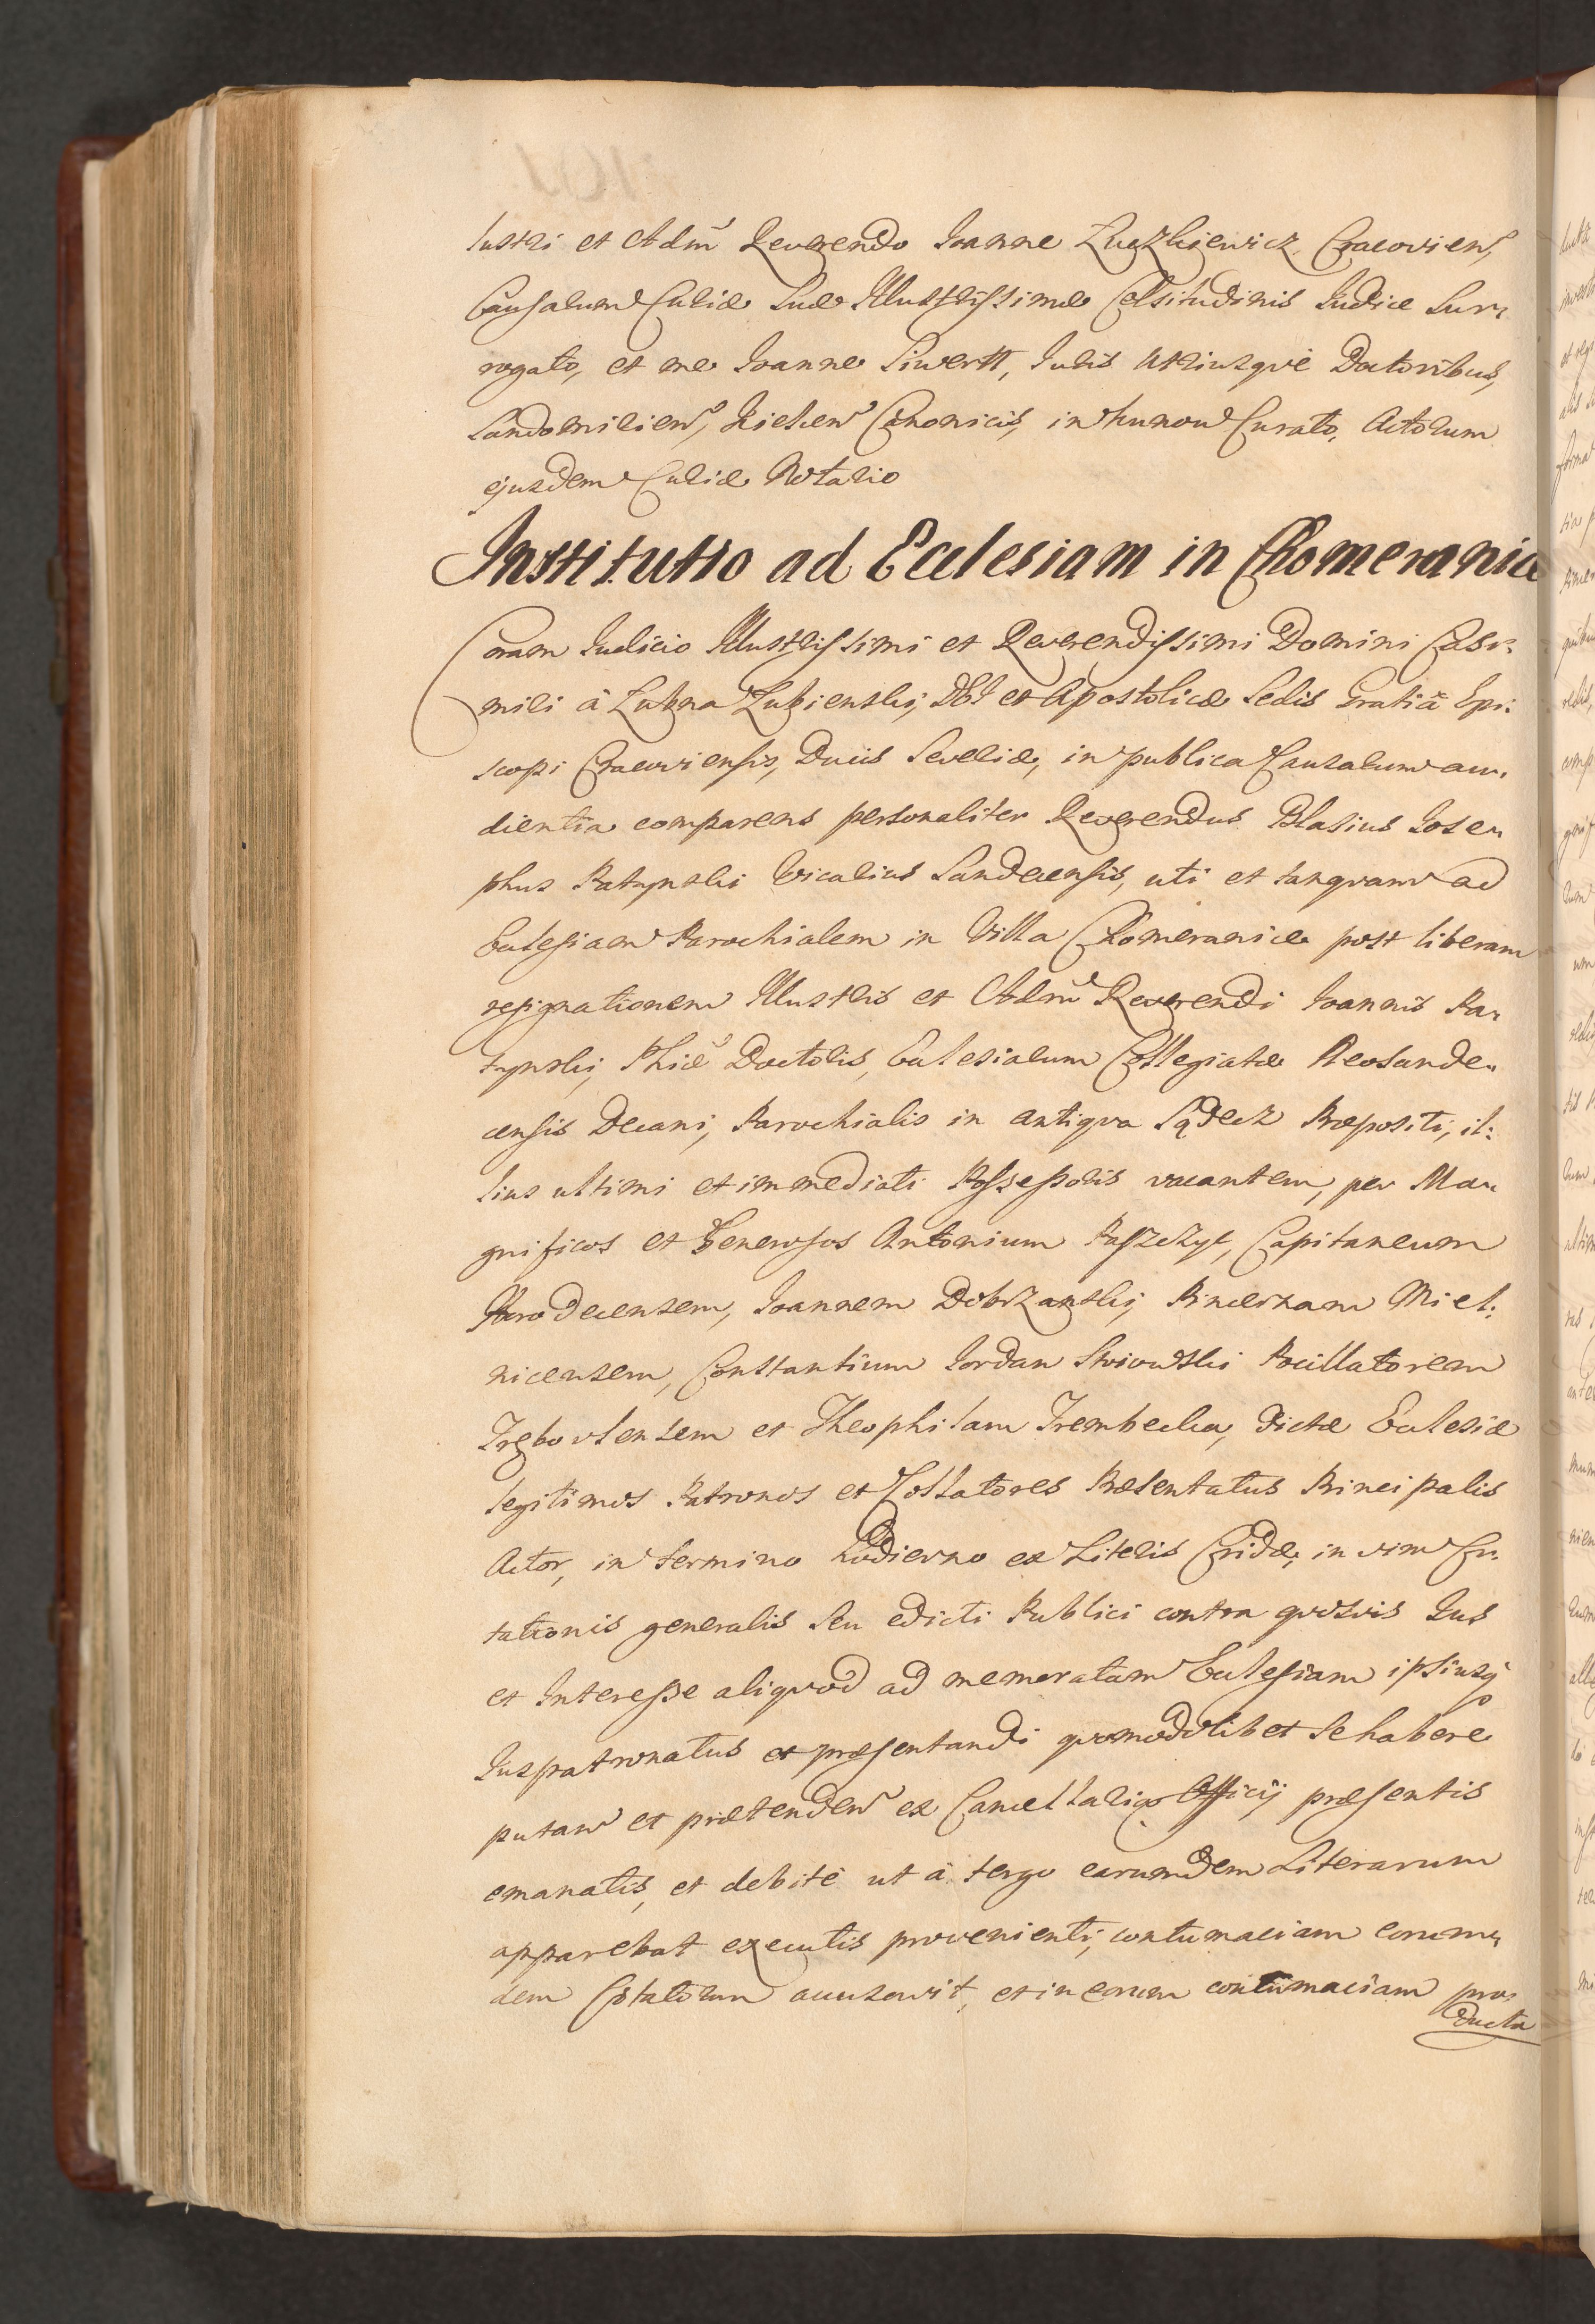 lustri et Adm̃ Reverendo Ioanne Łuczkiewicz Cracovien̄,
Causarum Curiæ Suæ Illustrissimæ Celsitudinis Iudice Sur-
rogato, et me Ioanne Siwertt, Iuris Utriusque Doctoribus,
Sandomirien̄, Kielcen̄ Canonicis, in Curato, Actorum
ejusdem Curiæ Notario
Institutio ad Ecclesiam in Chomeranice
Coram Iudicio Illustrissimi et Reverendissimi Domini Casi-
miri à Łubna Łubienski, DEI et Apostolicæ Sedis Gratiâ Epi-
scopi Cracoviensis, Ducis Severiæ, in publica Causarum au-
dientia comparens personaliter Reverendus Blasius Iose-
phus Ratynski Vicarius Sandecensis, uti et tanquam ad
Ecclesiam Parochialem in Villa Chomeranice post liberam
resignationem Illustris et Adm̃ Reverendi Ioannis Ra-
tynski, Phiæ Doctoris, Ecclesiarum Collegiatæ Neosande-
censis Decani, Parochialis in antiqva Sądecz Præpositi, il-
lius ultimi et immediati Possessoris vacantem, per Ma-
gnificos et Generosos Antonium Paszczyc, Capitaneum
Dobrzanski, Pincernam Miel-
nicensem, Constantium Iordan Stoiowski Pocillatorem
Trębovlensem et Theophilam Trembecka, dictæ Ecclesiæ
legitimos Patronos et Collatores Præsentatus Principalis
Actor, in termino hodierno ex Literis Cridæ, in vim Ci-
tationis generalis seu edicti Publici contra qvosvis Ius
et Interesse aliqvod ad memoratam Ecclesiam ipsiusq̃
Iuspatronatus et præsentandi qvomodolibet se habere
putan̄ et prætenden̄ ex Cancellaria Officij præsentis
emanatis, et debitè ut à tergo earumdem Literarum
apparebat executis provenienti, contumaciam eorum-
dem Citatorum accusavit, et in eorum contumaciam pro-
ducta